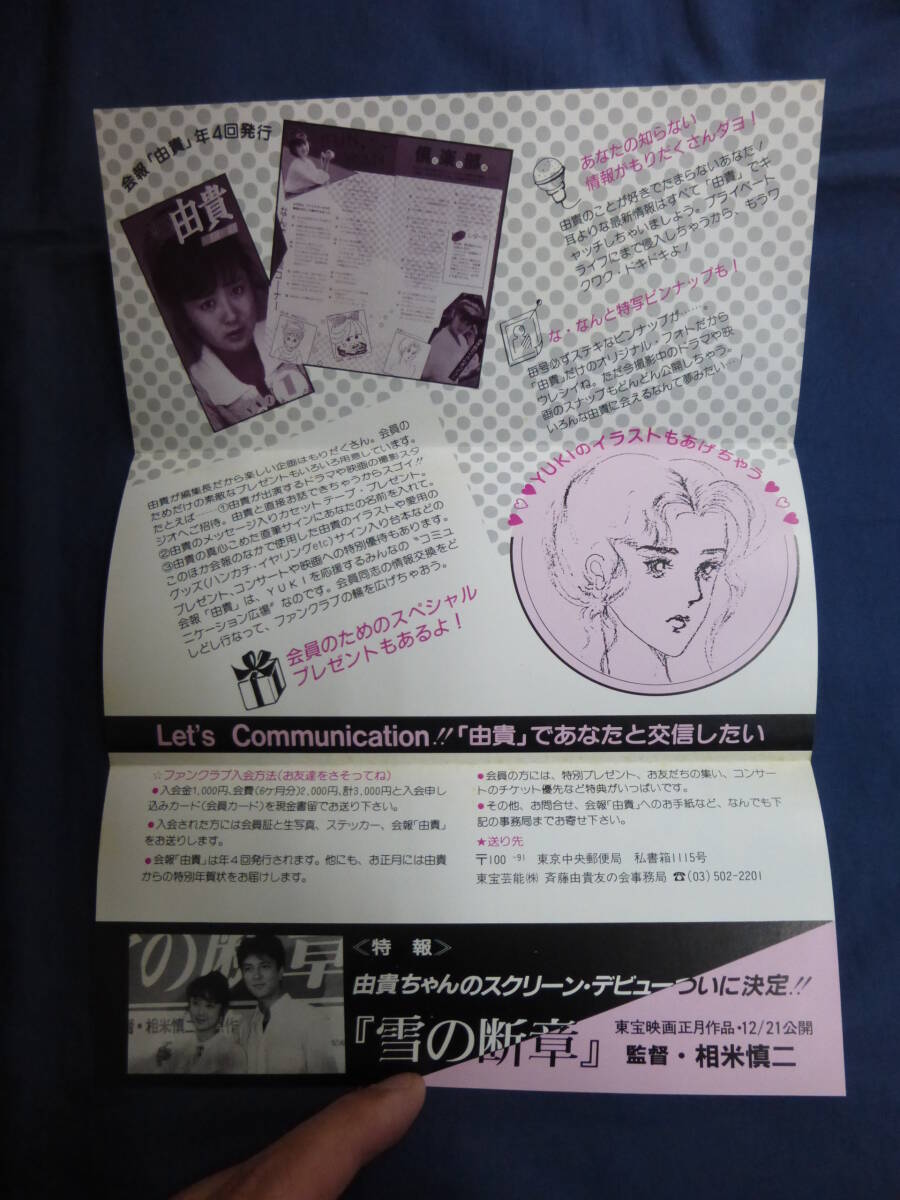 会報「由貴」年4回発行
由貴
No.1
倶楽部
あなたの知らない
情報がもりたくさんダヨ！
由貴のことが好きでたまらないあなた！
耳よりな最新情報はすべて「由貴」でキ
ャッチしちゃいましょう。プライベート
ライフにまで侵入しちゃうから、もうワ
クワク・ドキドキよ！
な・なんと特写ピンナップも！
毎号必ずステキなピンナップが……。
「由貴」だけのオリジナル・フォトだから
ウレシイね。ただ今撮影中のドラマや映
画のスナップもどんどん公開しちゃう。
いろんな由貴に会えるなんて夢みたい…！
由貴が編集長だから楽しい企画はもりだくさん。会員の
ためだけの素敵なプレゼントもいろいろ用意しています。
たとえば……①由貴が出演するドラマや映画の撮影スタ
ジオへご招待。由貴と直接お話できちゃうからスゴイ!!
②由貴のメッセージ入りカセットテープ・プレゼント。
③由貴の真心こめた直筆サインにあなたの名前を入れて。
このほか会報のなかで使用した由貴のイラストや愛用の
グッズ(ハンカチ・イヤリングetc)サイン入り台本などの
プレゼント、コンサートや映画への特別優待もあります。
会報「由貴」は、YUKIを応援するみんなの“コミュ
ニケーション広場”なのです。会員同志の情報交換をど
しどし行なって、ファンクラブの輪を広げちゃおう。
♥♡YUKIのイラストもあげちゃう♡♥
会員のためのスペシャル
プレゼントもあるよ！
Let's Communication!!「由貴」であなたと交信したい
☆ファンクラブ入会方法(お友達をさそってね)
●入会金1,000円、会費(6ケ月分)2,000円、計3,000円と入会申し
込みカード(会員カード)を現金書留でお送り下さい。
●入会された方には会員証と生写真、ステッカー、会報「由貴」
をお送りします。
●会報「由貴」は年4回発行されます。他にも、お正月には由貴
からの特別年賀状をお届けします。
●会員の方には、特別プレゼント、お友だちの集い、コンサー
トのチケット優先など特典がいっぱいです。
●その他、お問合せ、会報「由貴」へのお手紙など、なんでも下
記の事務局までお寄せ下さい。
★送り先
〒100-91 東京中央郵便局 私書箱1115号
東宝芸能㈱ 斉藤由貴友の会事務局 ☎(03)502-2201
の断章
・相米慎二
《特報》
由貴ちゃんのスクリーン・デビューついに決定!!
『雪の断章』
東宝映画正月作品・12/21公開
監督・相米慎二